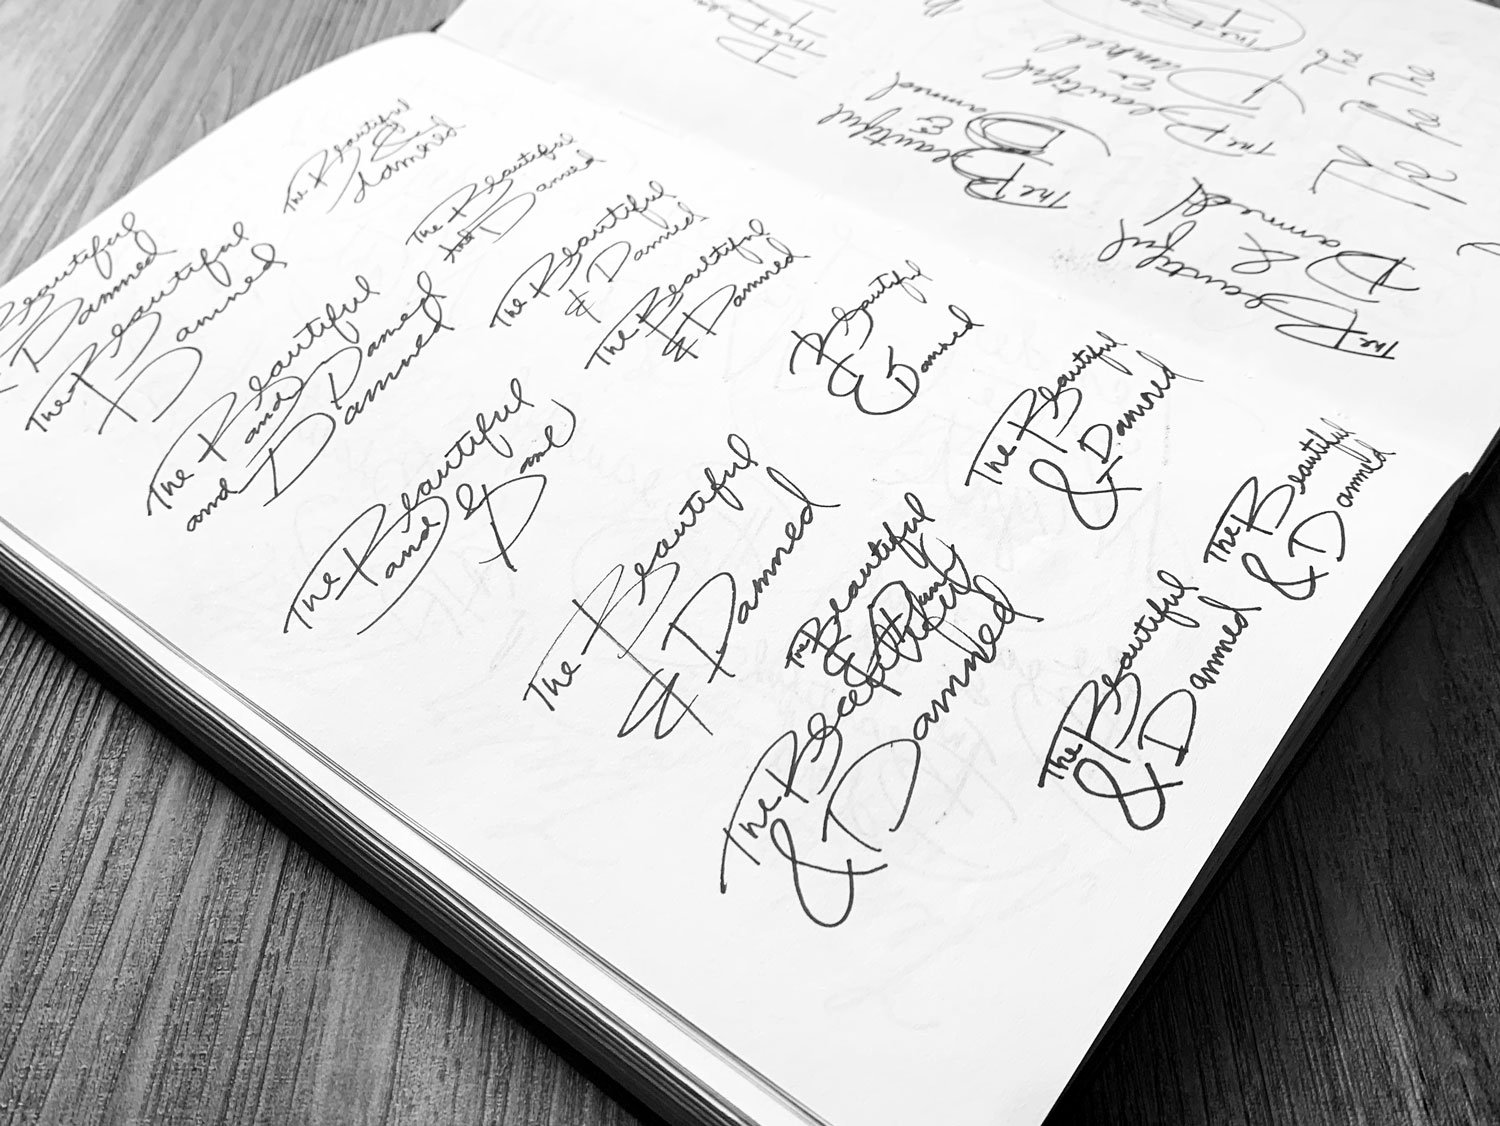 The Beautiful
& Damned
The Beautiful
and Damned
The Beautiful
& Damned
The Beautiful
& Damned
Beautiful
& Damned
The Beautiful
& Damned
The Beautiful
& Damned
Beautiful
Damned
The Beautiful
Damned
The Beautiful
and Damned
and Damned
The Beautiful
and &
The Beautiful
& Damned
The Beautiful
&
The
& Damned
The Beautiful
& Damned
The Beautiful
& Damned
The Beautiful
&
Damned
The Beautiful
&
Damned
The Beautiful
&